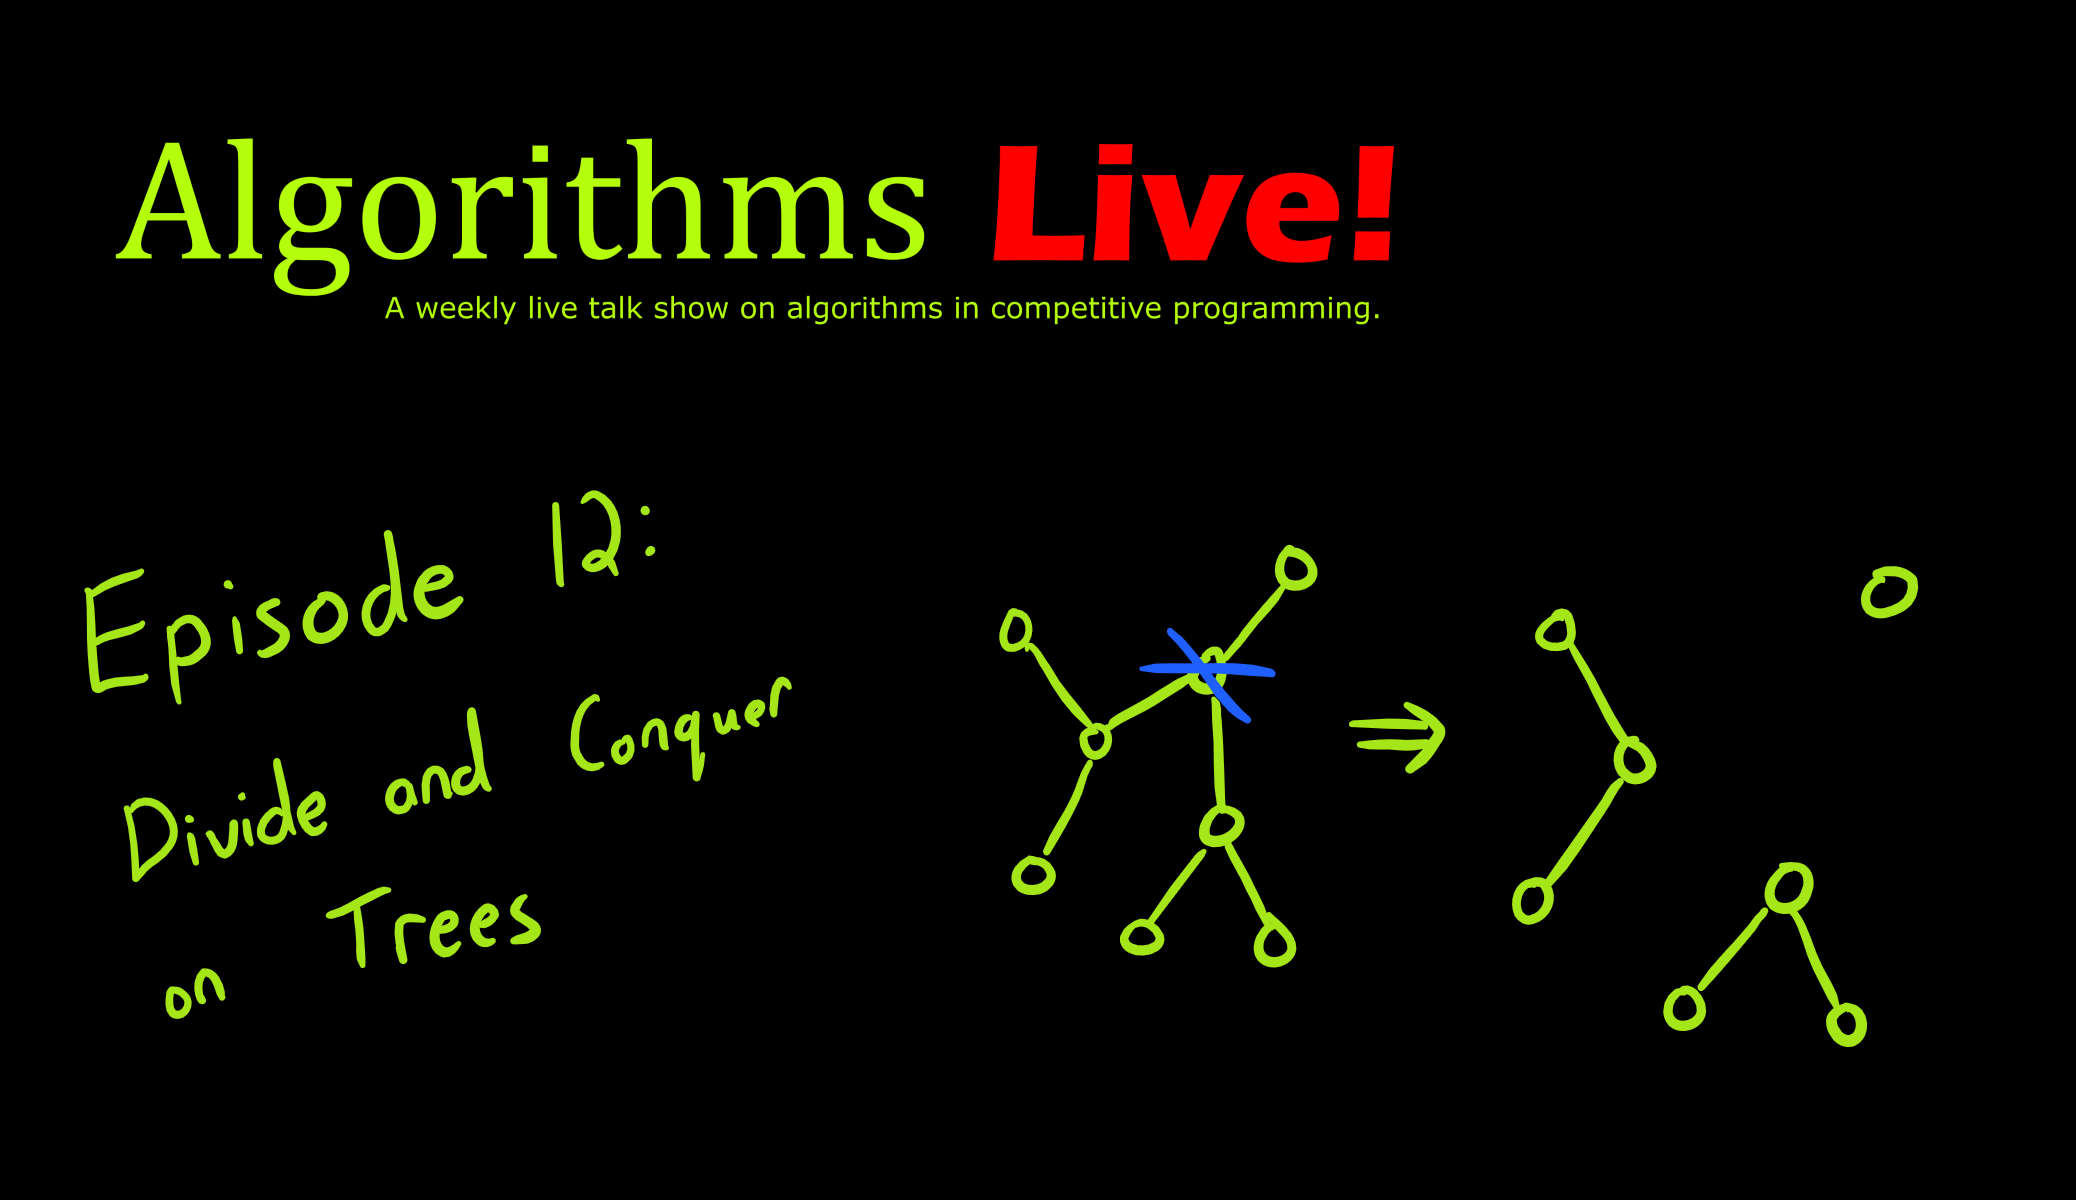 Algorithms Live!
A weekly live talk show on algorithms in competitive programming.
Episode 12:
Divide and Conquer
on Trees